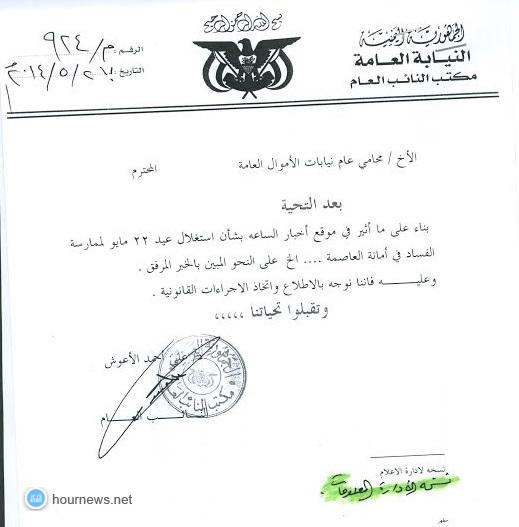 بسم الله الرحمن الرحيم
الجمهورية اليمنية
النيابة العامة
مكتب النائب العام
الرقم: م/٩٢٤
التاريخ: /٥/٢٠١٤م
الأخ / محامي عام نيابات الأموال العامة المحترم
بعد التحية
بناء على ما أثير في موقع أخبار الساعه بشأن استغلال عيد ٢٢ مايو لممارسة
الفساد في أمانة العاصمة .... الخ على النحو المبين بالخبر المرفق .
وعليـــه فاننا نوجه بالاطلاع واتخاذ الاجراءات القانونية .
وتقبلوا تحياتنا ,,,,,
علي احمد الأعوش
النـائـب العـــام
مكتب النائب العام
نسخه لادارة الاعلام
نسخة لأدارة المعلومات
hournews.net